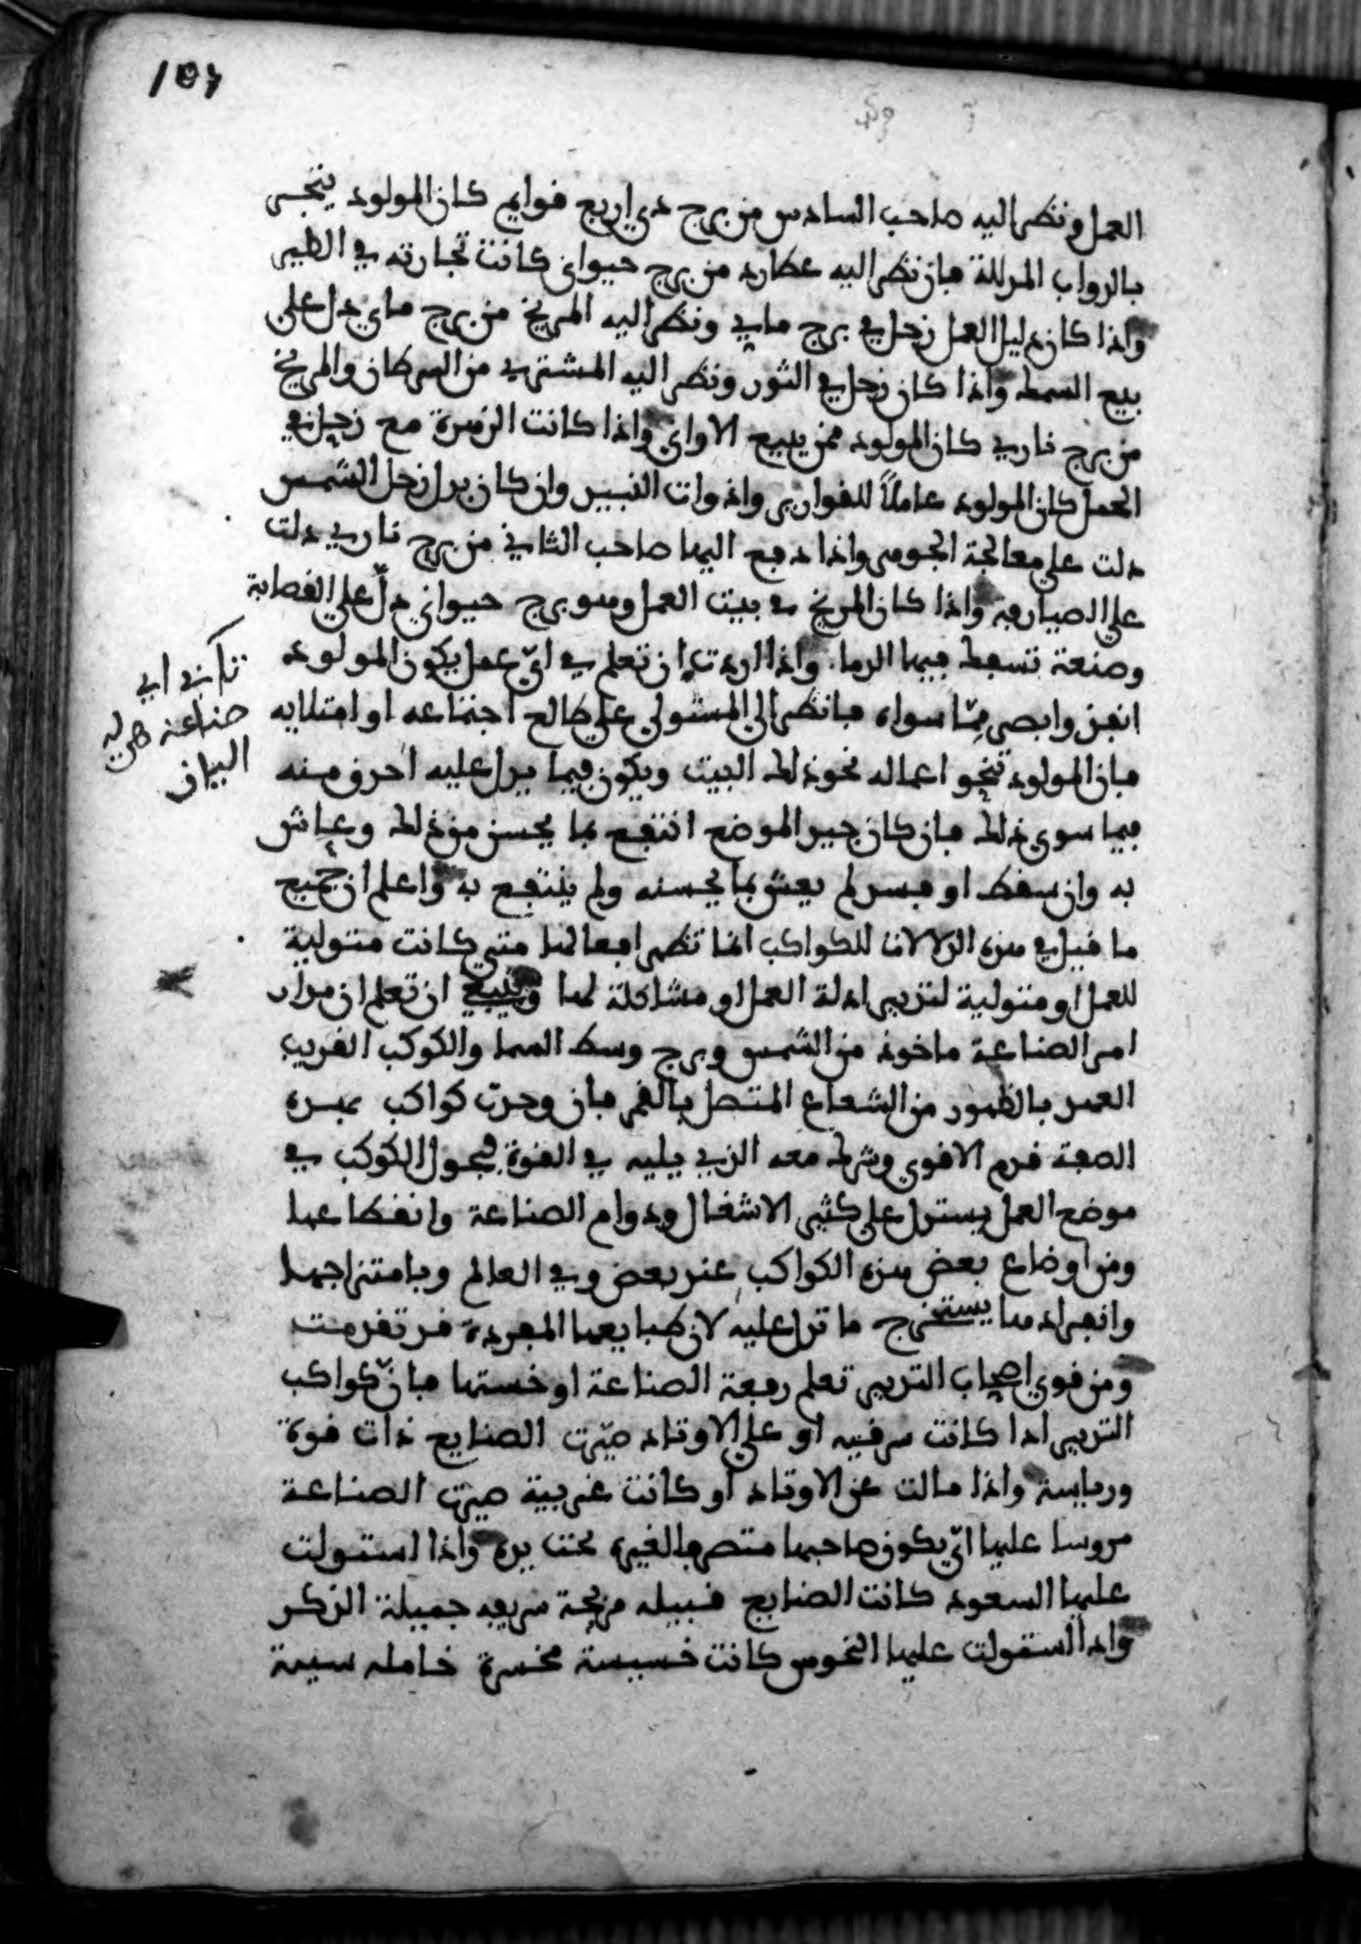 العمل ونظر اليه صاحب السادس من برج ذي اربع قوايم كان المولود يتجر
بالدواب المذللة فان نظر اليه عطارد من برج حيواني كانت تجارته في الطير
واذا كان دليل العمل زحل في برج مايي ونظر اليه المريخ من برج مايي دل على
بيع السمك واذا كان زحل في الثور ونظر اليه المشتري من السرطان والمريخ
من برج ناري كان المولود ممن يبيع الاواني واذا كانت الزهرة مع زحل في
الحمل كان المولود عاملا للقوارير واذوات النبيذ وان كان بدل زحل الشمس
دلت على معالجة الجوهر واذا دفع اليها صاحب الثاني من برج ناري دلت
على الصيارفه واذا كان المريخ في بيت العمل وهو برج حيواني دلّ على القصابة
وصنعة تسفك فيها الدما واذا اردت ان تعلم في ايّ عمل يكون المولود
انفذ وابصر ممّا سواه فانظر الى المستولي على طالع اجتماعه او امتلايه
فان المولود تنحو اعماله نحو ذلك البيت ويكون فيما يدل عليه احذق منه
فيما سوى ذلك فان كان جيد الموضع انتفع بما يحسن من ذلك وعاش
به وان سقط او فسد لم يعش بما يحسنه ولم ينتفع به واعلم ان جميع
ما قيل في هذه الدلالات للكواكب انما تظهر افعالها متى كانت متولية
للعمل او متولية لتدبير ادلة العمل او مشاكلة لها وينبغي ان تعلم ان مدار
امر الصناعة ماخوذ من الشمس وبرج وسط السما والكوكب القريب
العهد بالظهور من الشعاع المتصل بالقمر فان وجدت كواكب بهذه
الصفة قدم الاقوى وشرك معه الذي يليه في القوة فبحول الكوكب في
موضع العمل يستدل على كثير الاشغال ودوام الصناعة وانقطاعها
ومن اوضاع بعض هذه الكواكب عند بعض وفي العالم وبامتزاجها
وانفرادها يستخرج ما تدل عليه لان طبايعها المفردة قد تقدمت
ومن قوى اصحاب التدبير تعلم رفعة الصناعة او خستها فان كواكب
التدبير اذا كانت شرقيه او على الاوتاد صيّرت الصنايع ذات قوة
ورياسة واذا مالت عن الاوتاد او كانت غربية صيرت الصناعة
مروسا عليها ايّ يكون صاحبها متصرفا لغيره تحت يده واذا استولت
عليها السعود كانت الصنايع نبيله مربحة شريفه جميلة الذكر
واذا استولت عليها النحوس كانت خسيسة مخسرة خامله سيية
في اي
صناعة هو